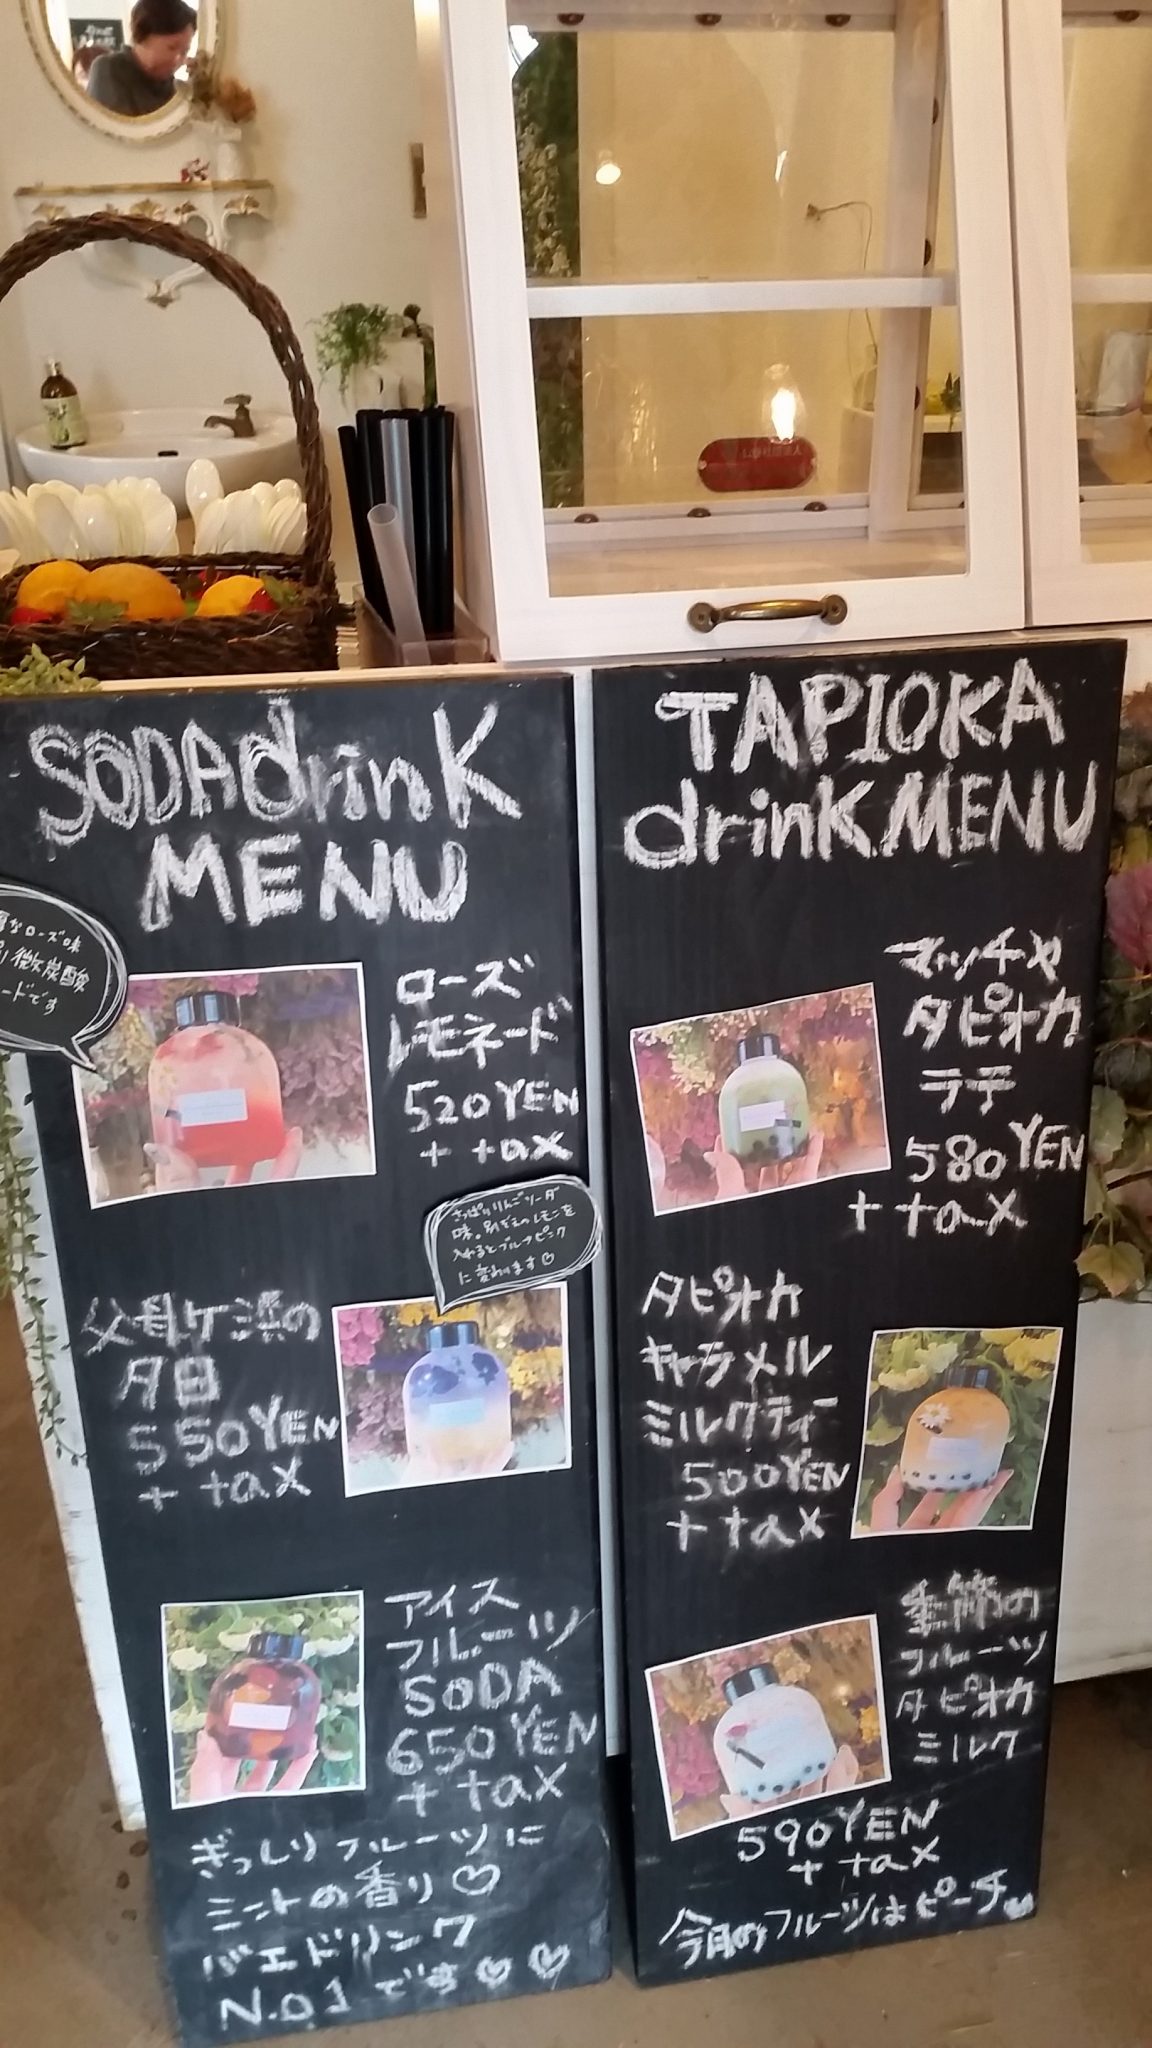 SODA drink
MENU
ローズ味
微炭酸
ードです
ローズ
レモネード
520YEN
+ tax
さっぱりりんごソーダ
味。別ぞえのレモンを
入れるとブルー→ピンク
に変わります♡
父母ケ浜の
夕日
550YEN
+ tax
アイス
フルーツ
SODA
650YEN
+ tax
ぎっしりフルーツに
ミントの香り♡
バエドリンク
N.O1です♡♡
TAPIOKA
drinK MENU
マッチャ
タピオカ
ラテ
580YEN
+ tax
タピオカ
キャラメル
ミルクティー
500YEN
+ tax
季節の
フルーツ
タピオカ
ミルク
590YEN
+ tax
今月のフルーツはピーチ♡